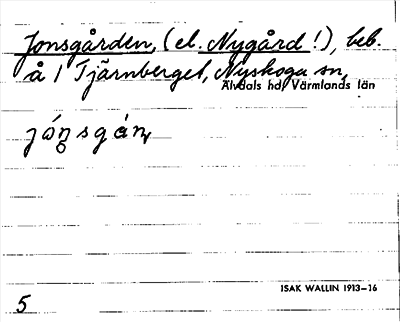 Jonsgården, (el. Nygård!), beb.
å 1 Tjärnberget, Nyskoga sn,
Älvdals hd, Värmlands län
ISAK WALLIN 1913–16
5